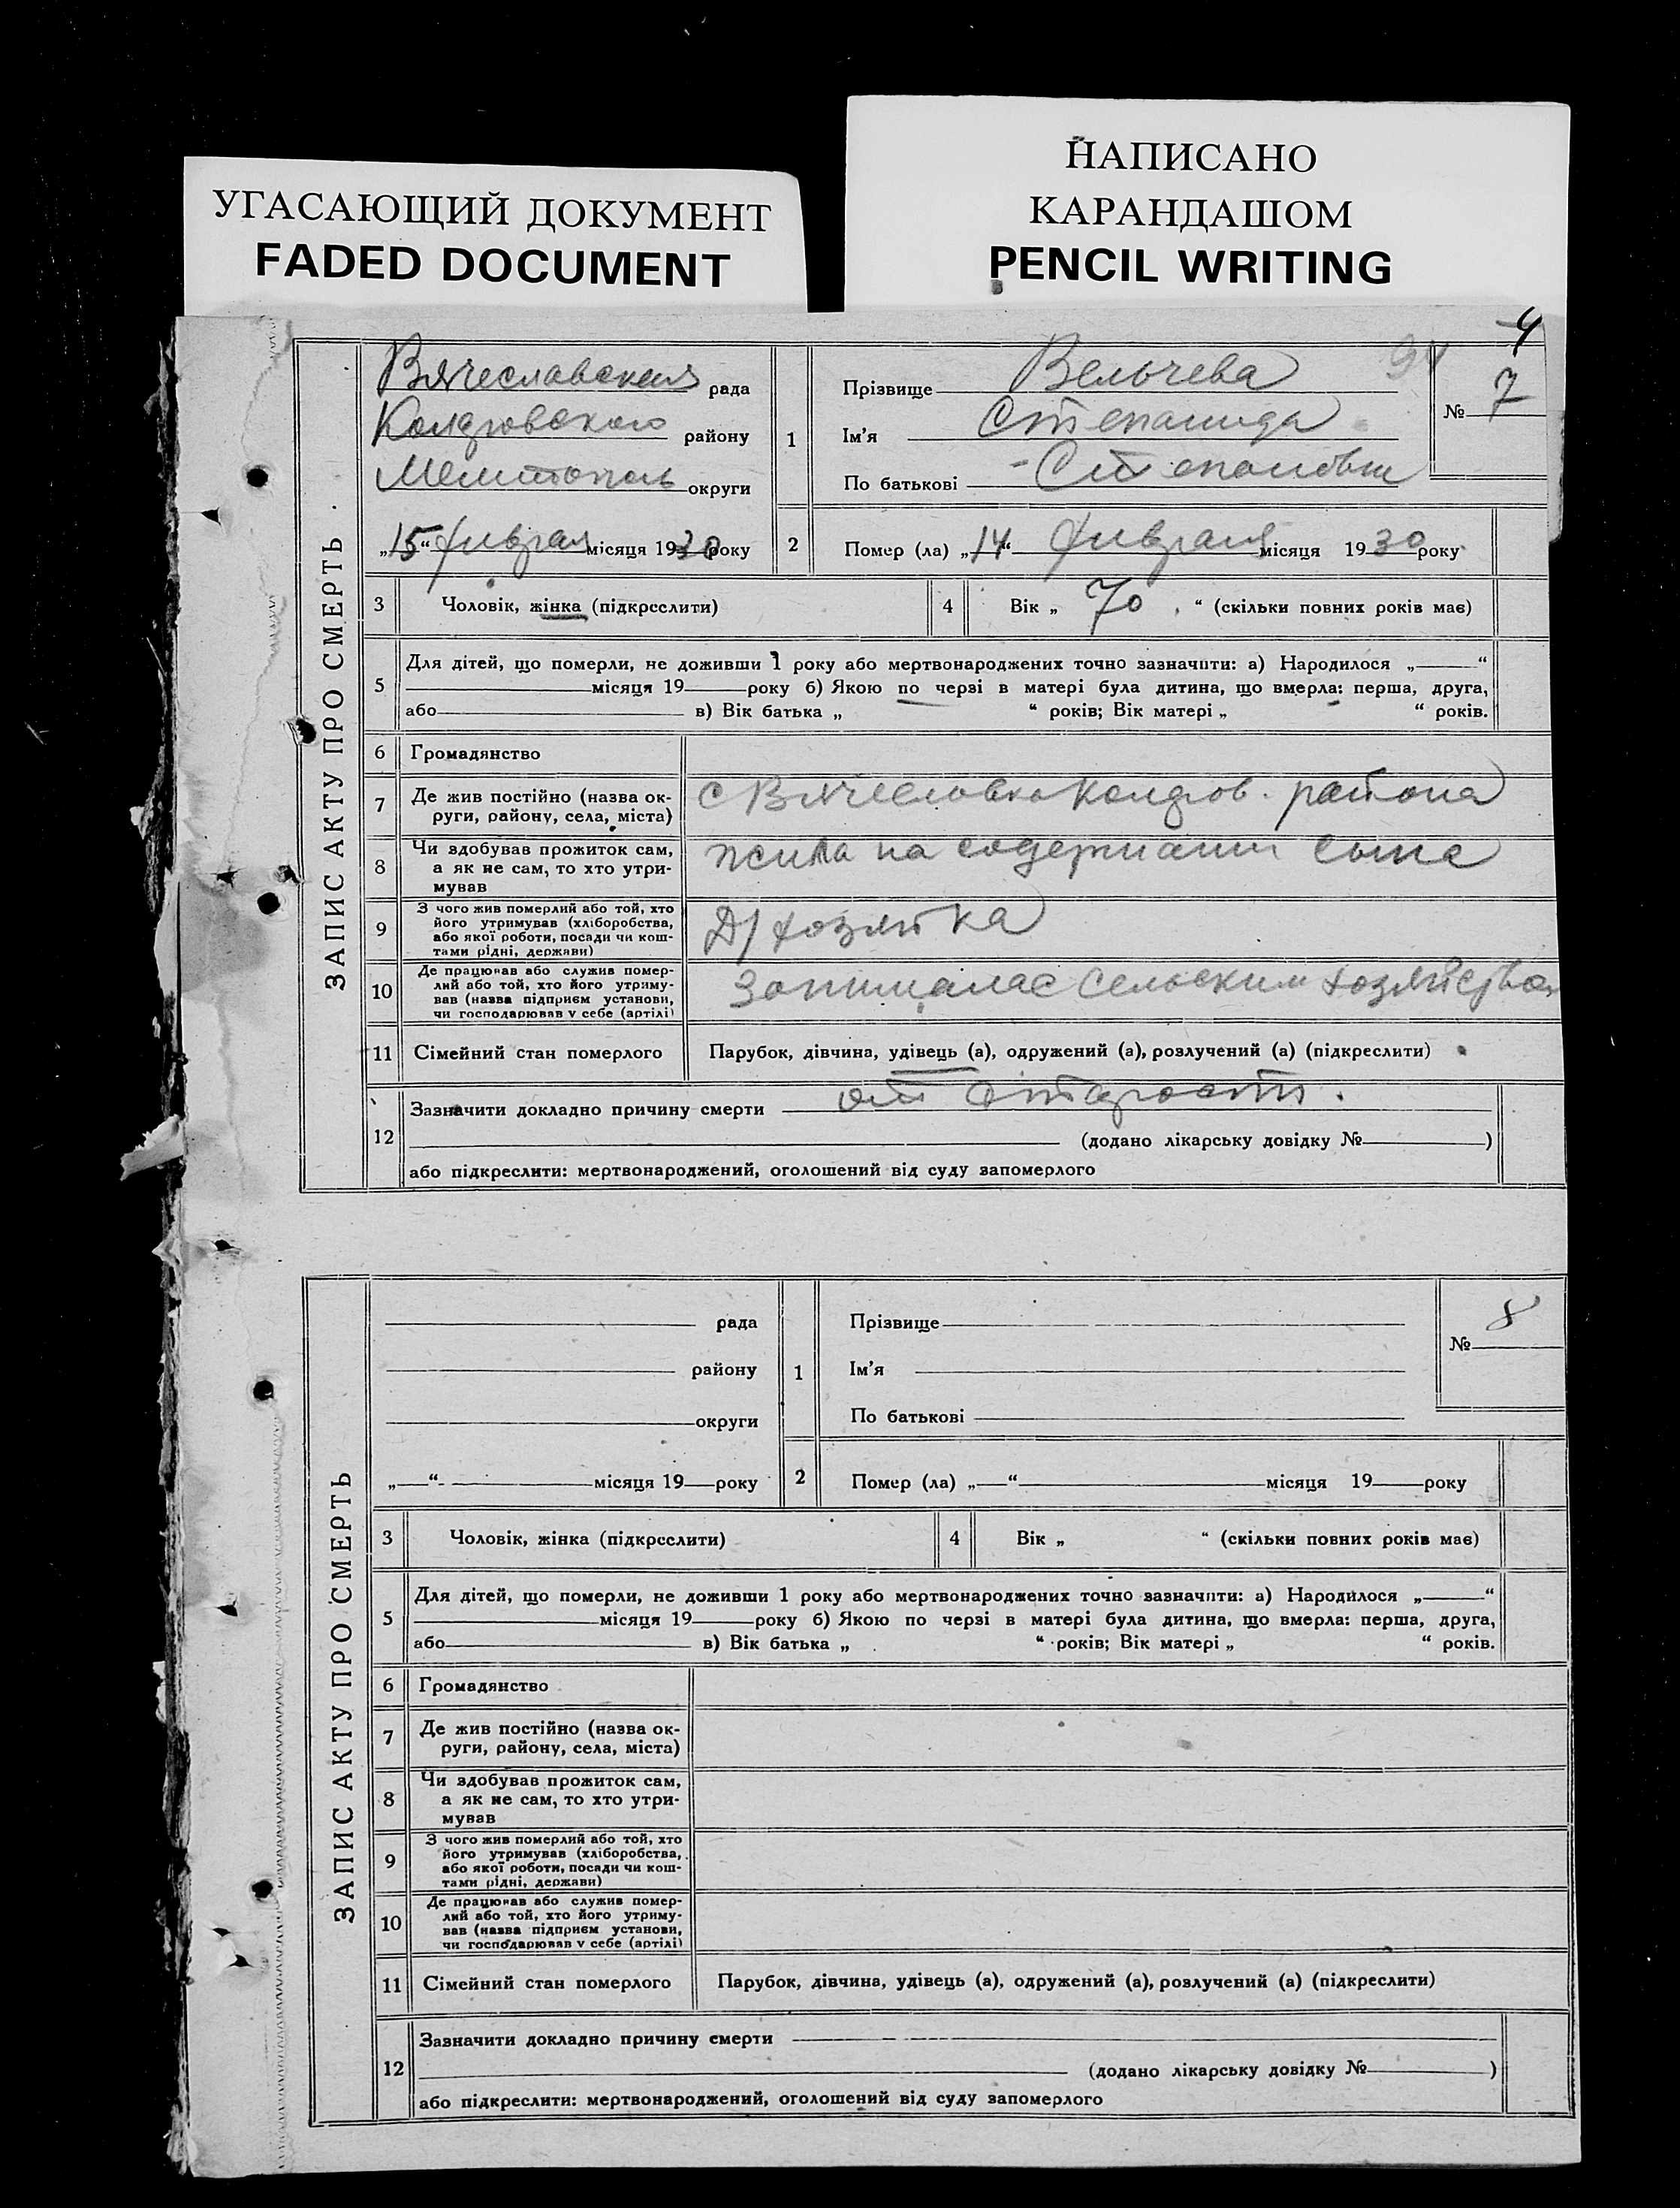 УГАСАЮЩИЙ ДОКУМЕНТ
FADED DOCUMENT
НАПИСАНО
КАРАНДАШОМ
PENCIL WRITING
4
94
ЗАПИС АКТУ ПРО СМЕРТЬ.
Вячеславская рада
района району
Мелитополь округи
„15“ феврал місяця 1930 року
1
Прізвище Вельчева
Ім'я Степанида
По батькові Степановна
№ 7
2
Помер (ла) „14“ февраля місяця 1930 року
3 Чоловік, жінка (підкреслити)
4 Вік „ 70 “ (скільки повних років має)
5 Для дітей, що померли, не доживши 1 року або мертвонароджених точно зазначити: а) Народилося „——“
місяця 19——року б) Якою по черзі в матері була дитина, що вмерла: перша, друга,
або в) Вік батька „ “ років; Вік матері „ “ років.
6 Громадянство
7 Де жив постійно (назва ок-
руги, району, села, міста)
с Вячеславка района
8 Чи здобував прожиток сам,
а як не сам, то хто утри-
мував
жила на содержании сына
9 З чого жив померлий або той, хто
його утримував (хліборобства,
або якої роботи, посади чи кош-
тами рідні, держави)
Д/хозяйка
10 Де працював або служив помер-
лий або той, хто його утриму-
вав (назва підприєм установи,
чи господарював у себе (артілі)
занималас сельским хозяйством
11 Сімейний стан померлого
Парубок, дівчина, удівець (а), одружений (а), розлучений (а) (підкреслити)
12 Зазначити докладно причину смерти от старости.
(додано лікарську довідку №——)
або підкреслити: мертвонароджений, оголошений від суду запомерлого
ЗАПИС АКТУ ПРО СМЕРТЬ
рада
району
округи
„——“ місяця 19——року
1
Прізвище
Ім'я
По батькові
№ 8
2
Помер (ла) „——“ місяця 19——року
3 Чоловік, жінка (підкреслити)
4 Вік „ “ (скільки повних років має)
5 Для дітей, що померли, не доживши 1 року або мертвонароджених точно зазначити: а) Народилося „——“
місяця 19——року б) Якою по черзі в матері була дитина, що вмерла: перша, друга,
або в) Вік батька „ “ років; Вік матері „ “ років.
6 Громадянство
7 Де жив постійно (назва ок-
руги, району, села, міста)
8 Чи здобував прожиток сам,
а як не сам, то хто утри-
мував
9 З чого жив померлий або той, хто
його утримував (хліборобства,
або якої роботи, посади чи кош-
тами рідні, держави)
10 Де працював або служив помер-
лий або той, хто його утриму-
вав (назва підприєм установи,
чи господарював у себе (артілі)
11 Сімейний стан померлого
Парубок, дівчина, удівець (а), одружений (а), розлучений (а) (підкреслити)
12 Зазначити докладно причину смерти
(додано лікарську довідку №——)
або підкреслити: мертвонароджений, оголошений від суду запомерлого